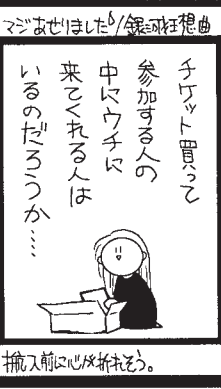 マジあせりました💧/銀河狂想曲
チケット買って
参加する人の
中にウチに
来てくれる人は
いるのだろうか‥‥
搬入前に心が折れそう。